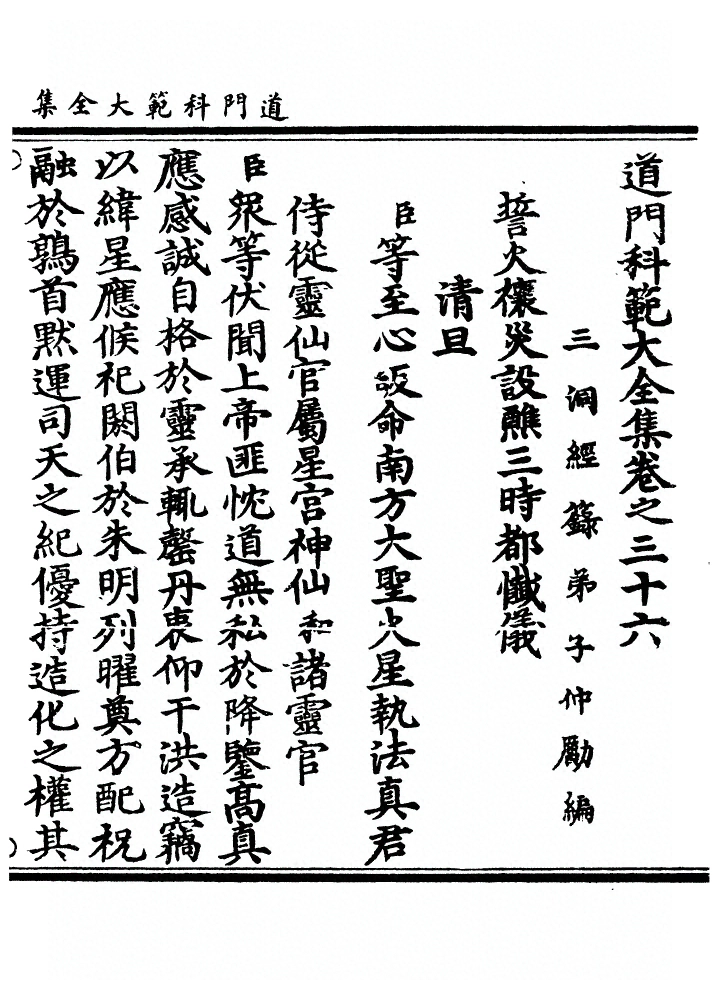 道門科範大全集
道門科範大全集卷之三十六
三洞經籙弟子仲勵編
誓火禳災設醮三時都懺儀
清旦
臣等至心皈命南方大聖火星執法真君
侍從靈仙官屬星宮神仙和諸靈官
臣眾等伏聞上帝匪忱道無私於降鑒高真
應感誠自格於靈承輒罄丹衷仰干洪造竊
以緯星應候祀閼伯於朱明列曜奠方配祝
融於鶉首默運司天之紀優持造化之權其